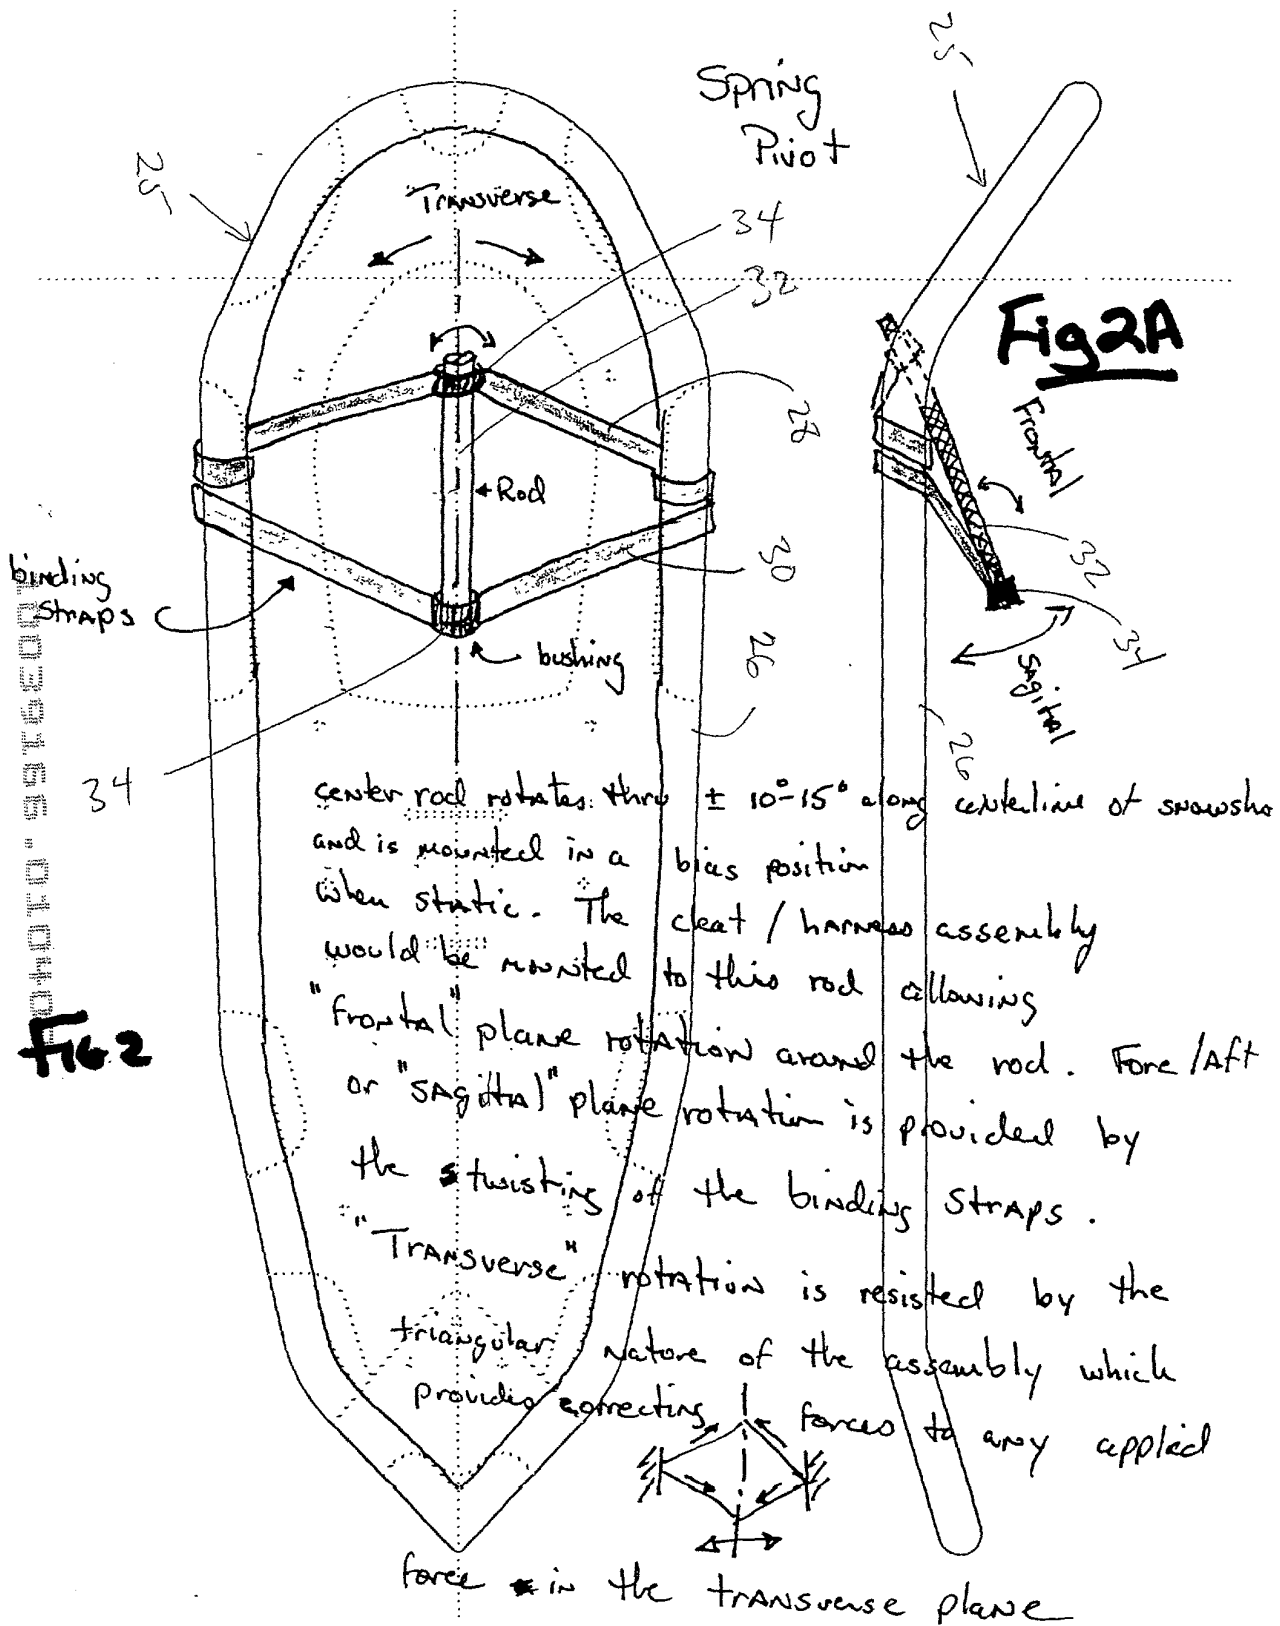 Spring
Pivot
25
25
Transverse
34
32
Fig2A
28
Frontal
Rod
binding
straps
30
32
34
bushing
26
Sagital
26
34
10039166.01040
center rod rotates thru ± 10°-15° along centerline of snowsho
and is mounted in a bias position
when static. The cleat / harness assembly
would be mounted to this rod allowing
"frontal" plane rotation around the rod. Fore/Aft
Fig 2
or "sagittal" plane rotation is provided by
the twisting of the binding straps.
"Transverse" rotation is resisted by the
triangular nature of the assembly which
provides correcting forces to any applied
force in the transverse plane